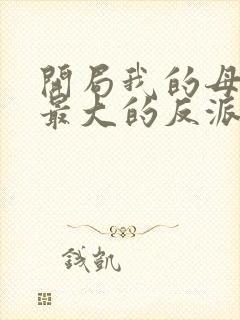 開局我的母
最大的反派
錢凱